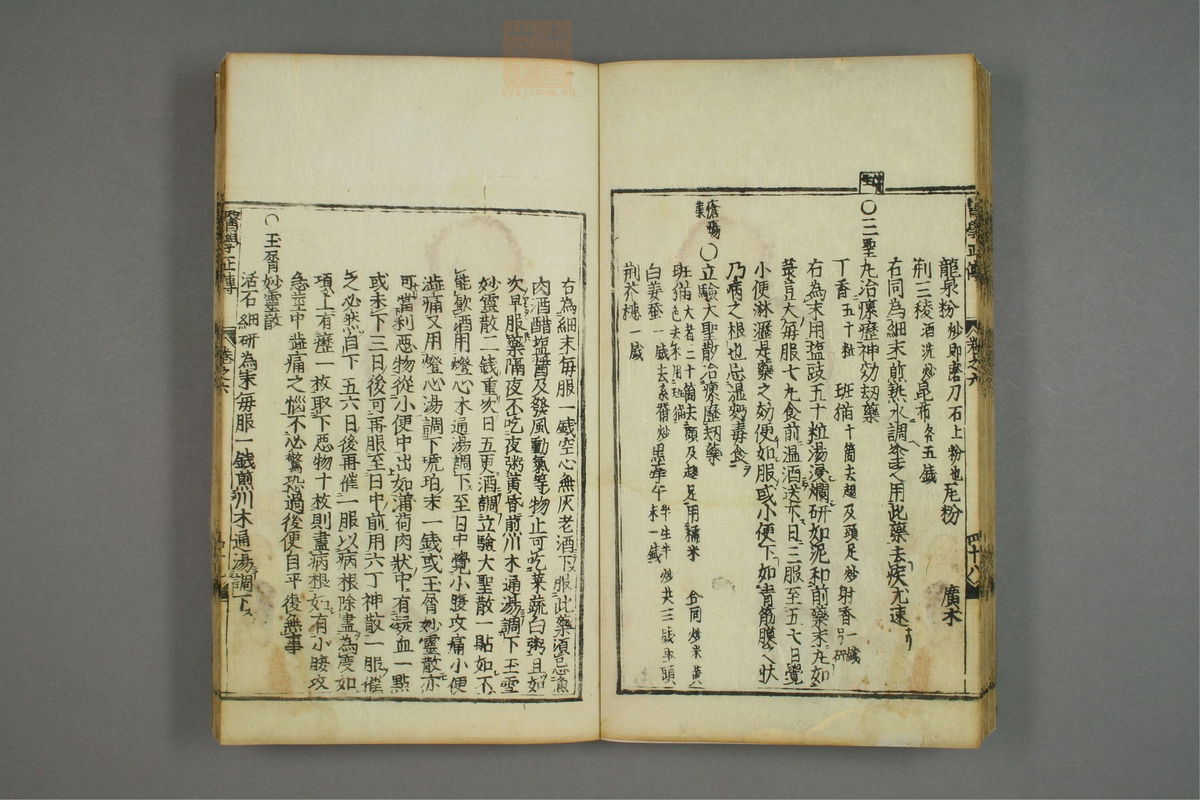 醫學正傳 卷之六 四十八
龍泉粉炒即磨刀石上粉也 瓦粉 廣木
荆三棱酒洗炒 昆布各五錢
右同為細末煎熱水調塗之用此藥去疾尤速
〇三聖丸治瘰癧神効刼藥
丁香五十粒 班猫十箇去翅及頭足炒 射香一錢另研
右為末用塩豉五十粒湯浸爛研如泥和前藥末丸如
菉荳大每服七丸食前温酒送下日三服至五七日覺
小便淋瀝是藥之効便如服或小便下如青筋膜之狀
乃病之根也忌温麪毒食
瘡瘍藥 〇立驗大聖散治瘰癧刼藥
班猫大者二十箇去頭及翅足用糯米仝同炒米黄色去米用班猫
白姜蚕一錢去糸觜炒 黒牽牛半生半炒共三錢取頭末一錢
荆芥穂一錢
右為細末每服一錢空心無灰老酒下服此藥須忌魚
肉酒醋塩醤及發風動氣等物止可吃菜蔬白粥且如
次早服藥隔夜不吃夜粥黄昏煎川木通湯調下玉
妙靈散二錢重次日五更酒調立驗大聖散一貼如不
能飲酒用燈心木通湯調下至日中覺小腹攻痛小便
澁痛又用燈心湯調下琥珀末一錢或玉脊妙靈散亦
可當利惡物從小便中出如蒲荷肉狀中有凝血一點
或未下三日後可再服至日中前用六丁神散一服催
之必然自下五六日後再催一服以病根除盡為度如
項上有癧一枚取下惡物十枚則盡病根如有小腹攻
急莖中澁痛之惱不必驚恐過後便自平復無事
〇玉脊妙靈散
活石細研為末每服一錢煎川木通湯調下
醫學正傳 卷之六
zysj.com.cn